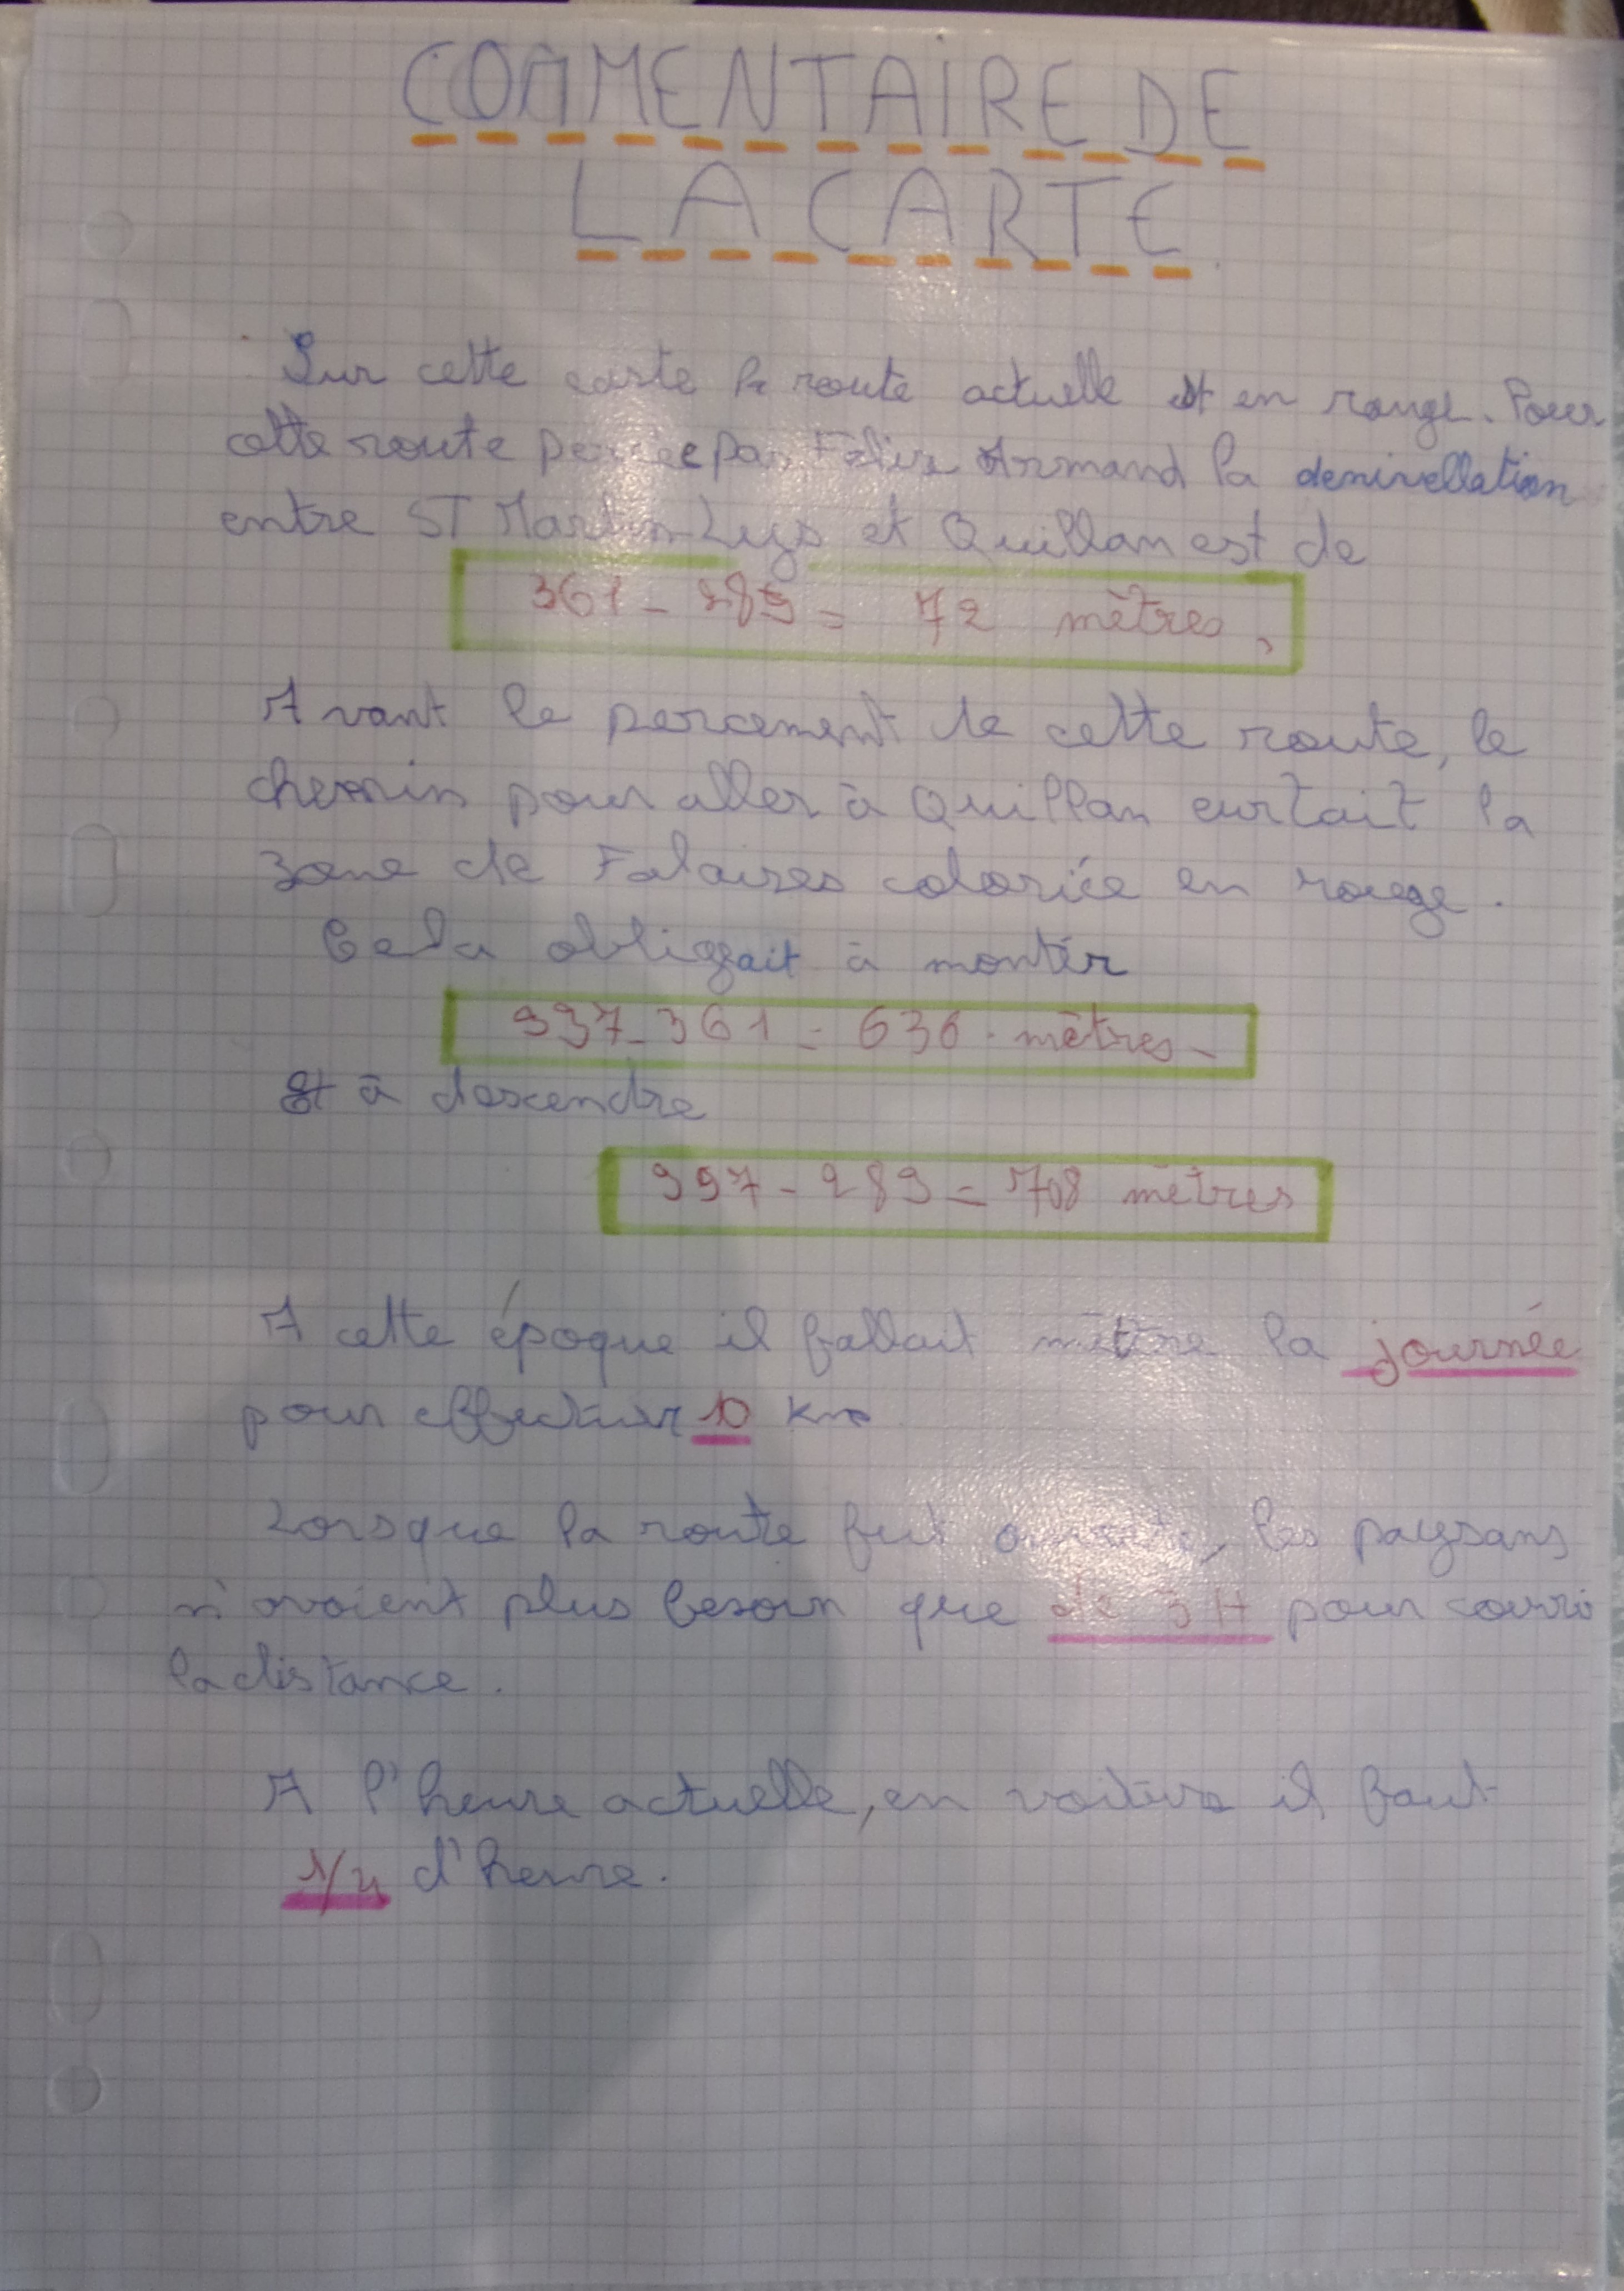 COMMENTAIRE DE
LA CARTE.
Sur cette carte la route actuelle est en rouge. Pour
cette route percée par Félix Armand la denivellation
entre ST Martin-Lys et Quillan est de
361 - 289 = 72 mètres,
Avant le percement de cette route, le
chemin pour aller à Quillan evitait la
zone de Falaises coloriée en rouge.
Cela obligeait à monter
997 - 361 = 636 mètres-
Et à descendre
997 - 289 = 708 mètres
A cette époque il fallait mettre la journée
pour effectuer 10 km
Lorsque la route fut ouverte, les paysans
n'avaient plus besoin que de 3H pour couvrir
la distance.
A l'heure actuelle, en voiture il faut
1/4 d'heure.